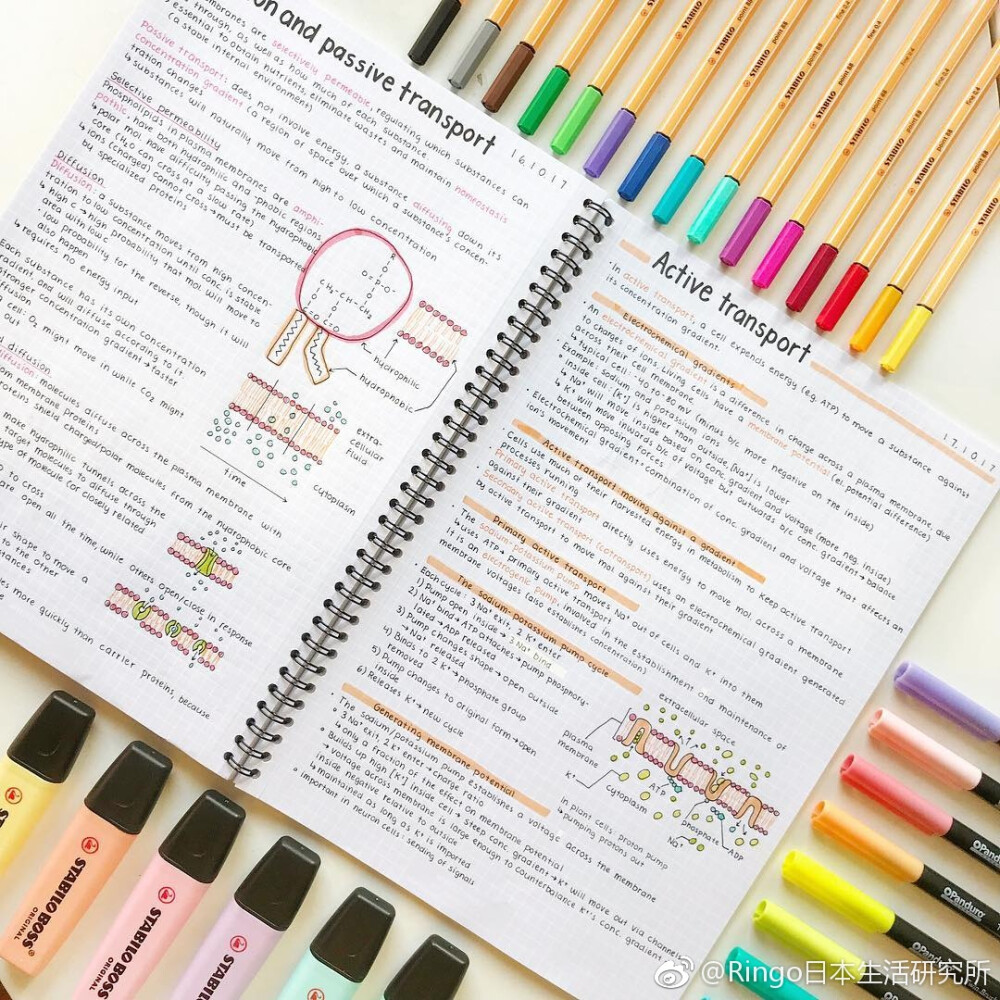 on and passive transport
16.10.17
membranes are selectively permeable, regulating which substances can
through, as well as how much of each substance
essential to obtain nutrients, eliminate wastes and maintain homeostasis
(a stable internal environment)
passive transport: does not involve energy, a substance diffusing down its
concentration gradient (a region of space over which a substance's concen-
tration changes)
↳ substances will naturally move from high to low concentration
Selective permeability
Phospholipids in plasma membranes are amphi-
pathic: have both hydrophilic and -phobic regions
↳ polar mol have difficulty passing the hydrophobic
core (H₂O can cross at a slow rate)
↳ ions (charged) cannot cross → must be transported
by specialized proteins
Diffusion
Diffusion: a substance moves from high concen-
tration to low concentration until conc is stable
↳ high c → high probability that mol will move to
area with low c
• low probability for the reverse, though it will
also happen
↳ requires no energy input
Each substance has its own concentration
gradient, and will diffuse according to it
stronger concentration gradient → faster
diffusion
cell: O₂ might move in while CO₂ might
out
diffusion
diffusion: molecules diffuse across the plasma membrane with
membrane proteins
proteins shield charged/polar molecules from the hydrophobic core
make hydrophilic tunnels across the
target molecules to diffuse through
type of molecule (or closely related
to cross
are open all the time, while others open/close in response
shape to move a
to the other
stances
more quickly than carrier proteins, because
hydrophilic
hydrophobic
extra-
cellular
fluid
cytoplasm
time
Active transport
17.10.17
• In active transport, a cell expends energy (e.g. ATP) to move a substance against
its concentration gradient.
Electrochemical gradients
• An electrochemical gradient is a difference in charge across a plasma membrane, due
to charges of ions. Living cells have a membrane potential (el. potential difference)
across their cell membrane.
↳ typical cell: -40 to -80 mV (minus b/c more negative on the inside)
Example: sodium and potassium ions
• Inside cell: [K⁺] is higher than outside, [Na⁺] is lower
↳ Na⁺ will move inside based on conc. gradient and voltage (more neg. inside)
↳ K⁺ will move inwards b/c of voltage but outwards b/c conc. gradient → balance
between opposing forces
• Electrochemical gradient: combination of conc. gradient and voltage that affects an
ion's movement
Active transport: moving against a gradient
• Cells use much of their harvested energy in metabolism to keep active transport
processes running
• Primary active transport directly uses energy to move mol. across a membrane
against their gradient
• Secondary active transport (cotransport) uses an electrochemical gradient generated
by active transport to move mol against their gradient
Primary active transport
• The sodium-potassium pump moves Na⁺ out of cells and K⁺ into them
↳ uses ATP → primary active transport
• It is an electrogenic pump involved in the establishment and maintenance of
membrane voltages (also establishes concentration)
The sodium-potassium pump cycle
Each cycle: 3 Na⁺ exit, 2 K⁺ enter
1) Pump open inside → 3 Na⁺ bind
2) Na⁺ bind → ATP attaches → pump phosphory-
lated → ADP released
3) Pump changes shape → open outside
→ Na⁺ released
4) Binds to 2 K⁺ → phosphate group
removed
5) Pump changes to original form → open
inside
6) Releases K⁺ → new cycle
extracellular
space
plasma
membrane
K⁺
Cytoplasm
ATP
phosphate
ADP
Na⁺
in plant cells proton pump
↳ pumping protons out
Generating membrane potential
• The sodium/potassium pump establishes a voltage across the membrane
• 3 Na⁺ exit, 2 K⁺ enter → charge ratio
↳ only a fraction of the effect on membrane potential
• Builds up high [K⁺] inside cell → steep conc. gradient → K⁺ will move out via channels
↳ voltage across membrane is large enough to counterbalance K⁺'s conc. gradient
inside negative relative to outside
↳ maintained as long as K⁺ is imported
• important in neuron cells: sending of signals
STABILO point 88 fine 0.4
STABILO BOSS
ORIGINAL
STABILO BOSS
ORIGINAL
STABILO BOSS
ORIGINAL
STABILO BOSS
ORIGINAL
Panduro
Panduro
Panduro
Panduro
@Ringo日本生活研究所